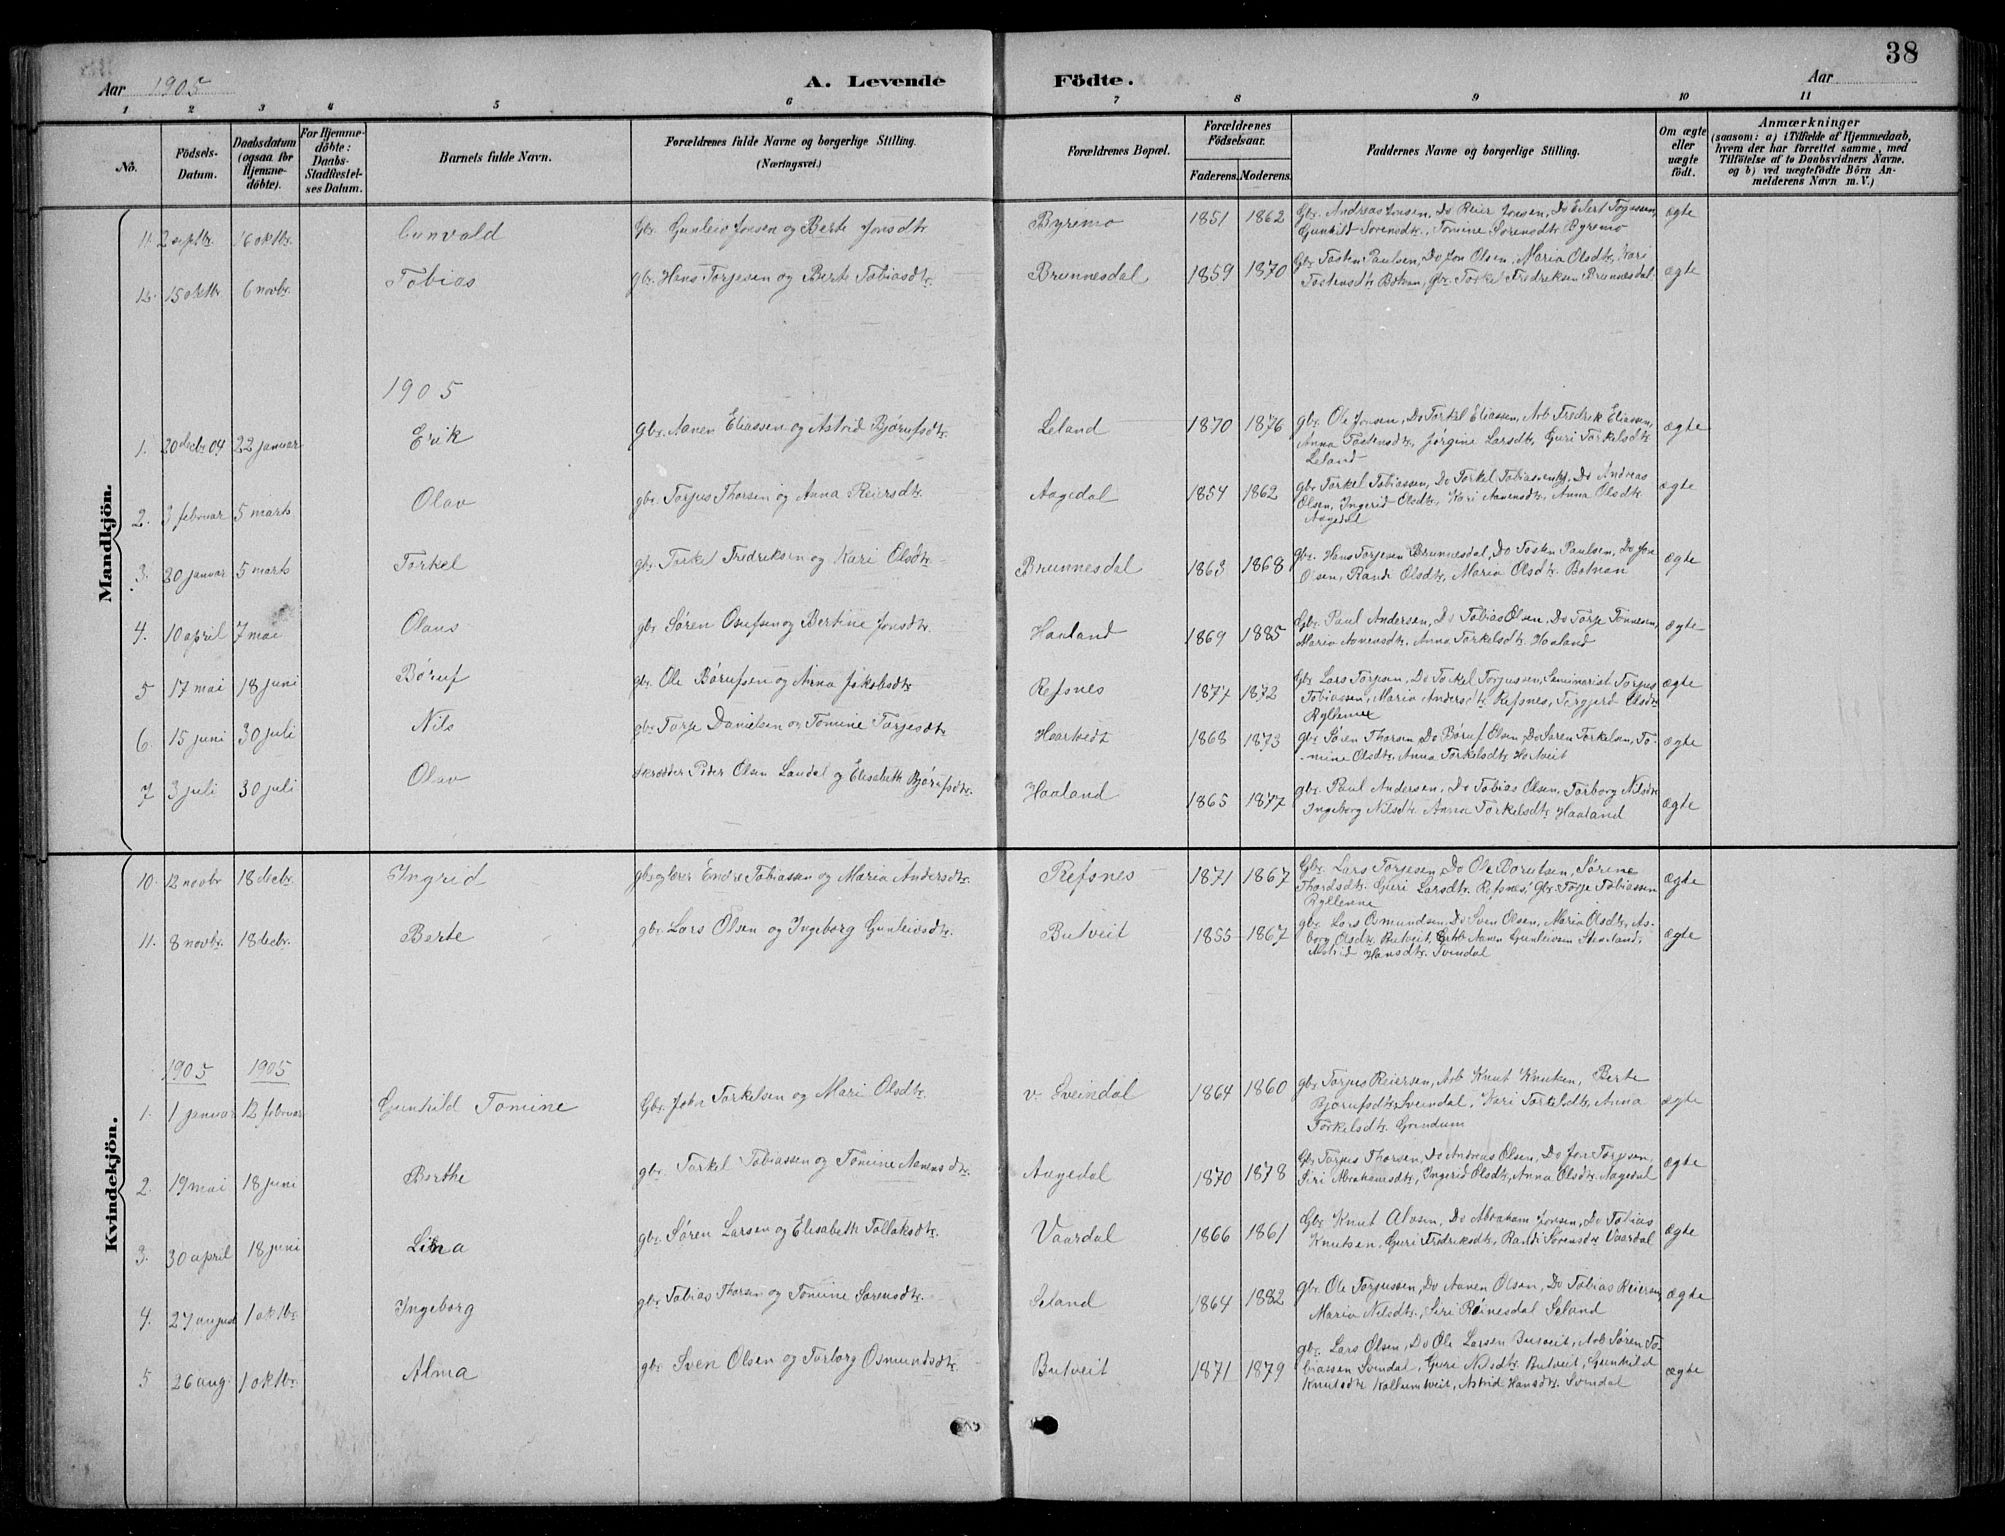 38
Aar 1905
A. Levende
Födte.
Aar
1 2 3 4 5 6 7 8 9 10 11
No.
Födsels-Datum.
Daabsdatum (ogsaa for Hjemme-döbte).
For Hjemme-döbte: Daabs-Stadfæstel-ses Datum.
Barnets fulde Navn.
Forældrenes fulde Navne og borgerlige Stilling. (Næringsvei.)
Forældrenes Bopæl.
Forældrenes Födselsaar.
Faderens. Moderens.
Faddernes Navne og borgerlige Stilling.
Om ægte eller uægte födt.
Anmærkninger
(saasom: a) i Tilfælde af Hjemmedaab,
hvem der har forrettet samme, med
Tilföielse af to Daabsvidners Navne.
og b) ved uægtefödte Börn An-
melderens Navn m. V.)
Mandkjön.
11. 2 septbr. 16 oktbr. Gunvald Gbr. Gunleiv Jonsen og Berte Jonsdtr. Byremo 1851 1862 Gbr. Andreas Jonsen, Do Reier Jonsen, Do Eilert Torjussen, ægte
Gunhild Sorensdtr., Tomine Sorensdtr. Byremo
12. 15 oktbr. 6 novbr. Tobias gbr. Hans Torjesen og Berte Tobiasdtr. Brunnesdal 1859 1870 Gbr. Tosten Paulsen, Do Jon Olsen, Maria Olsdtr., Kari ægte
Tostensdtr. Botnan, gbr. Torkel Fredriksen Brunnesdal
1905
1. 20 decbr. 04 22 januar Erik gbr. Aanen Eliassen og Astrid Bjørufsdtr. Leland 1870 1876 gbr. Ole Jonsen, Do Torkel Eliassen, Arb. Fredrik Eliassen, ægte
Anna Tostensdtr., Jørgine Larsdtr., Guri Torkelsdtr.
Leland
2. 3 februar 5 marts Olav gbr. Torjus Thorsen og Anna Reiersdtr. Aagedal 1854 1862 gbr. Torkel Tobiassen, Do Torkel Tobiassen, Do Andreas ægte
Olsen, Ingerid Olsdtr., Kari Aanensdtr., Anna Olsdtr.
Aagedal
3. 20 januar 5 marts Torkel gbr. Torkel Fredriksen og Kari Olsdtr. Brunnesdal 1863 1868 gbr. Hans Torjesen Brunnesdal, Do Tosten Paulsen, Do Jon ægte
Olsen, Randi Olsdtr., Maria Olsdtr. Botnan
4. 10 april 7 mai Olaus gbr. Søren Osufsen og Bertine Jonsdtr. Haaland 1869 1885 Gbr. Paul Andersen, Do Tobias Olsen, Do Torje Tønnesen, ægte
Maria Aanensdtr. Anna Torkelsdtr. Haaland
5 17 mai 18 juni Børuf gbr. Ole Børufsen og Anna Jakobsdtr. Refsnes 1877 1872 Gbr. Lars Torjesen, Do Torkel Torjussen, Seminarist Torjus ægte
Tobiassen, Maria Andersdtr. Refsnes, Torgjerd Olsdtr.
Ryllenne
6. 15 juni 30 juli Nils gbr. Torje Danielsen og Tomine Torjesdtr. Haartvedt 1868 1873 gbr. Søren Thorsen, Do Børuf Olsen, Do Søren Torkelsen, To- ægte
mine Olsdtr. Anna Torkelsdtr. Hortveit
7 3 juli 30 juli Olav Skrædder Peder Olsen Landal og Elisabeth Bjørufsdtr. Haaland 1865 1877 gbr. Paul Andersen, Do Tobias Olsen, Torborg Nilsdtr. ægte
Ingeborg Nilsdtr. Anna Torkelsdtr. Haaland
Kvindekjön.
10. 12 novbr 18 decbr. Ingrid gbr. og lærer Endre Tobiassen og Maria Andersdtr. Refsnes 1871 1867 Gbr. Lars Torjesen, Do Ole Børufsen, Sørine ægte
Thordsdtr. Guri Larsdtr. Refsnes, Gbr. Torje Tobiassen
Ryllenne
11. 8 novbr. 18 decbr. Berte gbr. Lars Olsen og Ingeborg Gunleivsdtr. Butveit 1855 1867 gbr. Lars Osmundsen, Do Sven Olsen, Maria Olsdtr., As- ægte
borg Olsdtr. Butveit, Aanen Gunleivsen Stenland,
Astrid Hansdtr. Svindal
1905 1905
1. 1 januar 12 februar Gunhild Tomine Gbr. John Torkelsen og Mari Olsdtr. v. Sveindal 1864 1860 gbr. Torjus Reiersen, Arb. Knut Knutsen, Berte ægte
Bjorufsdtr. Sveindal, Kari Torkelsdtr., Anna
Torkelsdtr. Grundum
2. 19 mai 18 juni Berthe gbr. Torkel Tobiassen og Tomine Aanensdtr. Aagedal 1870 1878 Gbr. Torjus Thorsen, Do Andreas Olsen, Do Jon Torjusen, ægte
Siri Abrahamsdtr., Ingerid Olsdtr., Anna Olsdtr. Aagedal
3. 30 april 18 juni Lina gbr. Søren Larsen og Elisabeth Tollaksdtr. Vaardal 1866 1861 Gbr. Knut Alvsen, Do Abraham Jonsen, Do Tobias ægte
Knutsen, Guri Fredriksdtr., Randi Sorensdtr. Vaardal
4. 27 august 1 oktbr. Ingeborg gbr. Tobias Thorsen og Tomine Sørensdtr. Seland 1864 1882 gbr. Ole Torjussen, Do Aanen Olsen, Do Tobias Reiersen, ægte
Maria Nilsdtr., Siri Røinesdal Seland
5 26 aug. 1 oktbr. Alma gbr. Sven Olsen og Torborg Osmundsdtr. Butveit 1871 1879 gbr. Lars Olsen, Do Ole Larsen Butveit, Arb. Søren To- ægte
biassen Svindal, Guri Nilsdtr. Butveit, Gunhild
Knutsdtr. Kollumtveit, Astrid Hansdtr. Svindal